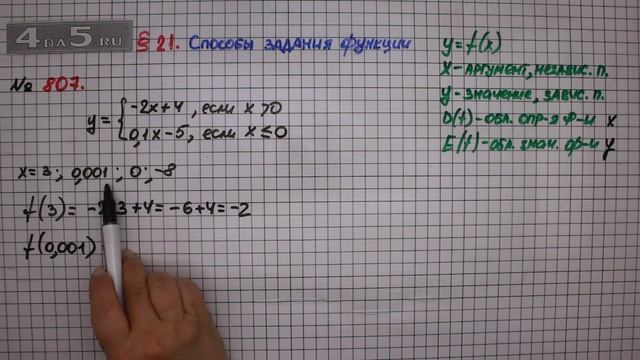 4DA5.RU
§ 21. Способы задания функции
№ 807.
y = { -2x+4, если x > 0
0,1x-5, если x ≤ 0
x = 3; 0,001; 0; -8
f(3) = -2·3+4 = -6+4 = -2
f(0,001)
y = f(x)
x - аргумент, независ. п.
y - значение, завис. п.
D(f) - обл. опр-я ф-и x
E(f) - обл. знач. ф-и y